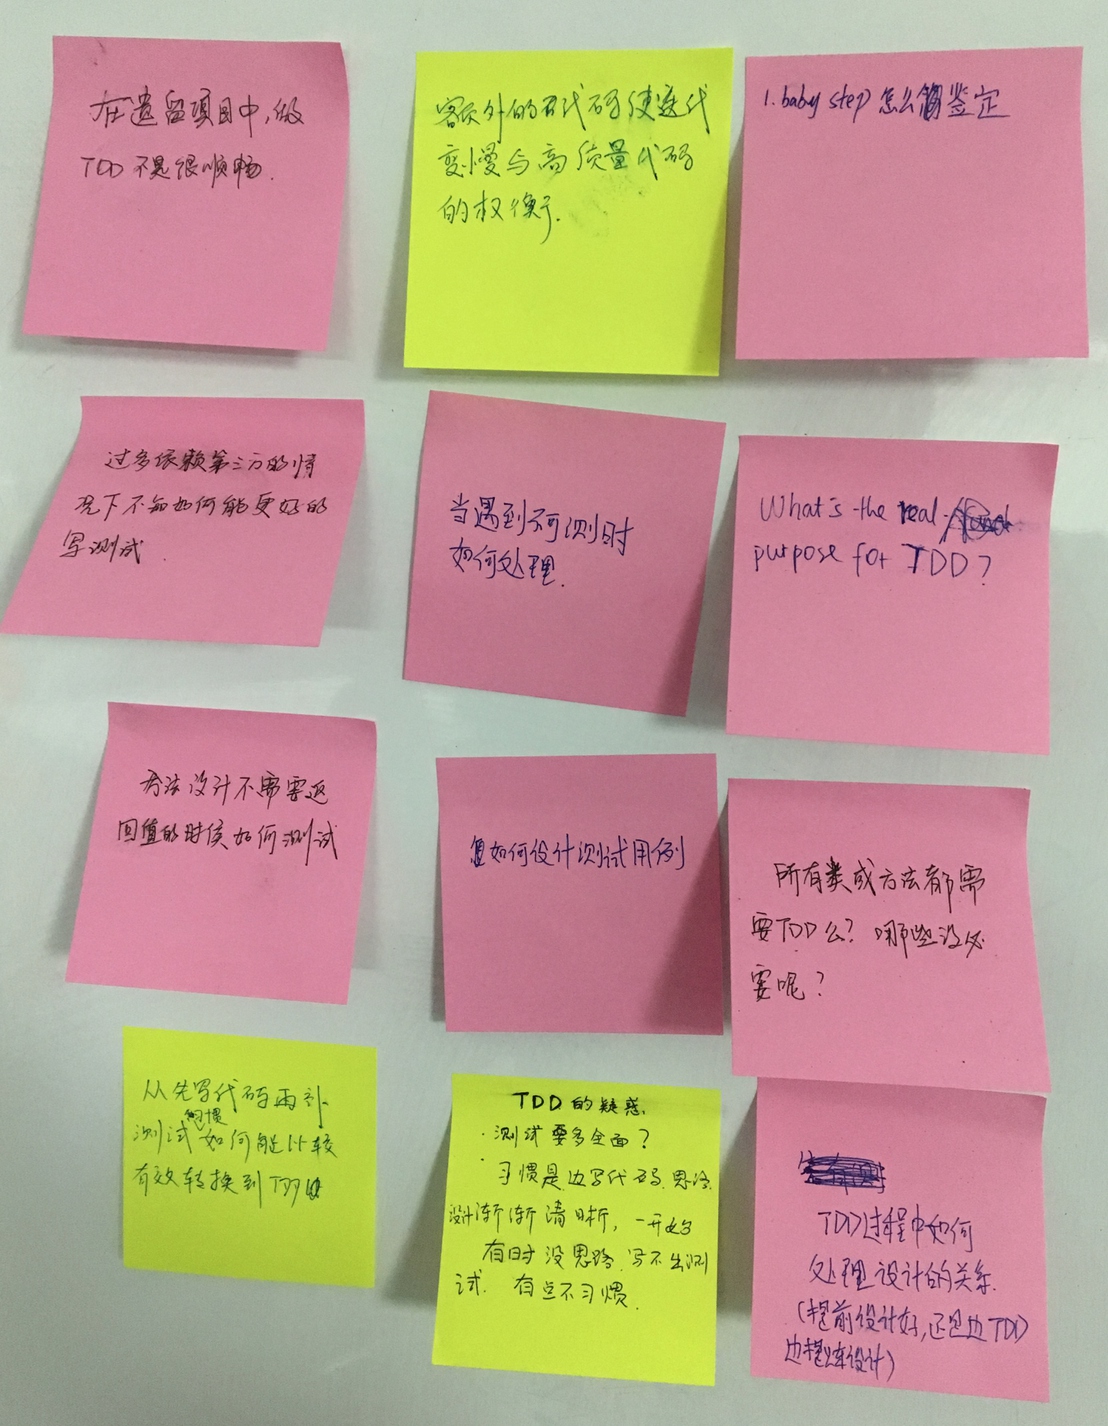 在遗留项目中,做
TDD 不是很顺畅.
额外的 代码使迭代
变慢与高质量代码
的权衡.
1. baby step 怎么 鉴定
过多依赖第三方的情
况下不知如何能更好的
写测试.
当遇到不可测时
如何处理.
What's the real
purpose for TDD?
方法设计不需要返
回值的时候如何测试
如何设计测试用例
所有类或方法都需
要TDD么? 哪些没必
要呢?
从先写代码再补
测试习惯如何能比较
有效转换到TDD
TDD的疑惑.
·测试要多全面?
·习惯是边写代码,思路
设计渐渐清晰,一开始
有时没思路.写不出测
试. 有点不习惯.
TDD过程中如何
处理设计的关系.
(提前设计好,还是边TDD
边 设计)